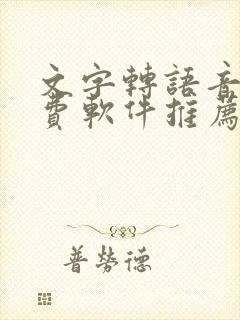 文字轉語音
費軟件推薦
普勞德